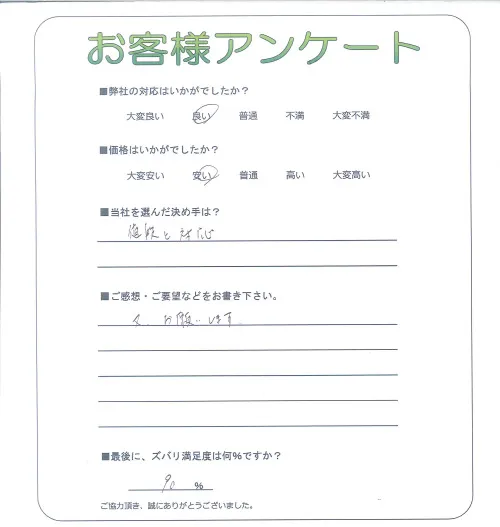 お客様アンケート
■弊社の対応はいかがでしたか?
大変良い 良い 普通 不満 大変不満
■価格はいかがでしたか?
大変安い 安い 普通 高い 大変高い
■当社を選んだ決め手は?
値段と対応
■ご感想・ご要望などをお書き下さい。
お願いします。
■最後に、ズバリ満足度は何%ですか?
90 %
ご協力頂き、誠にありがとうございました。